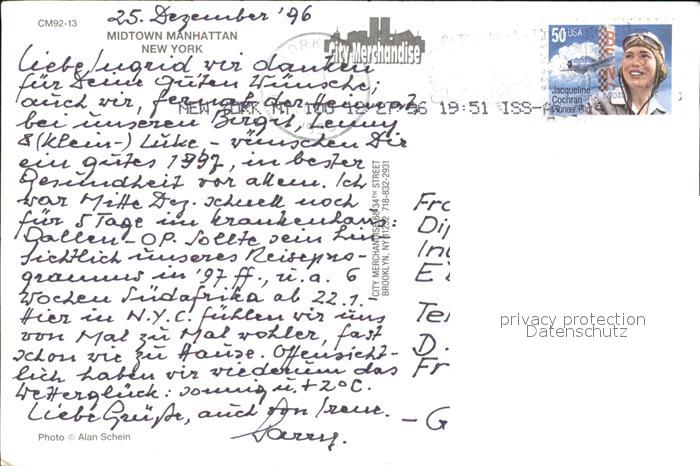 25. Dezember '96
CM92-13
MIDTOWN MANHATTAN
NEW YORK
City Merchandise
50 USA
Jacqueline
Cochran
Pioneer Pilot
NEW YORK NY 100 12-27-96 19:51
Liebe Ingrid wir danken
für Deine guten Wünsche,
auch wir, fernab der
bei unseren Birgit, Lenny
& (Klein-) Luke - wünschen Dir
ein gutes 1997, in bester
Gesundheit vor allem. Ich
war Mitte Dez. schnell noch
für 5 Tage im Krankenhaus:
Gallen-OP. Sollte sein hin-
sichtlich unseres Reisepro-
gramms in '97 ff., u.a. 6
Wochen Südafrika ab 22.1.
Hier in N.Y.C. fühlen wir uns
von Mal zu Mal wohler, fast
schon wie zu Hause. Offensicht-
lich haben wir wiederum das
Wetterglück: sonnig u. +2°C.
Liebe Grüße, auch von Irene.
Harry.
CITY MERCHANDISE 68 34TH STREET
BROOKLYN, NY 11232 718-832-2931
Te
D.
Fr
- G
privacy protection
Datenschutz
Photo © Alan Schein